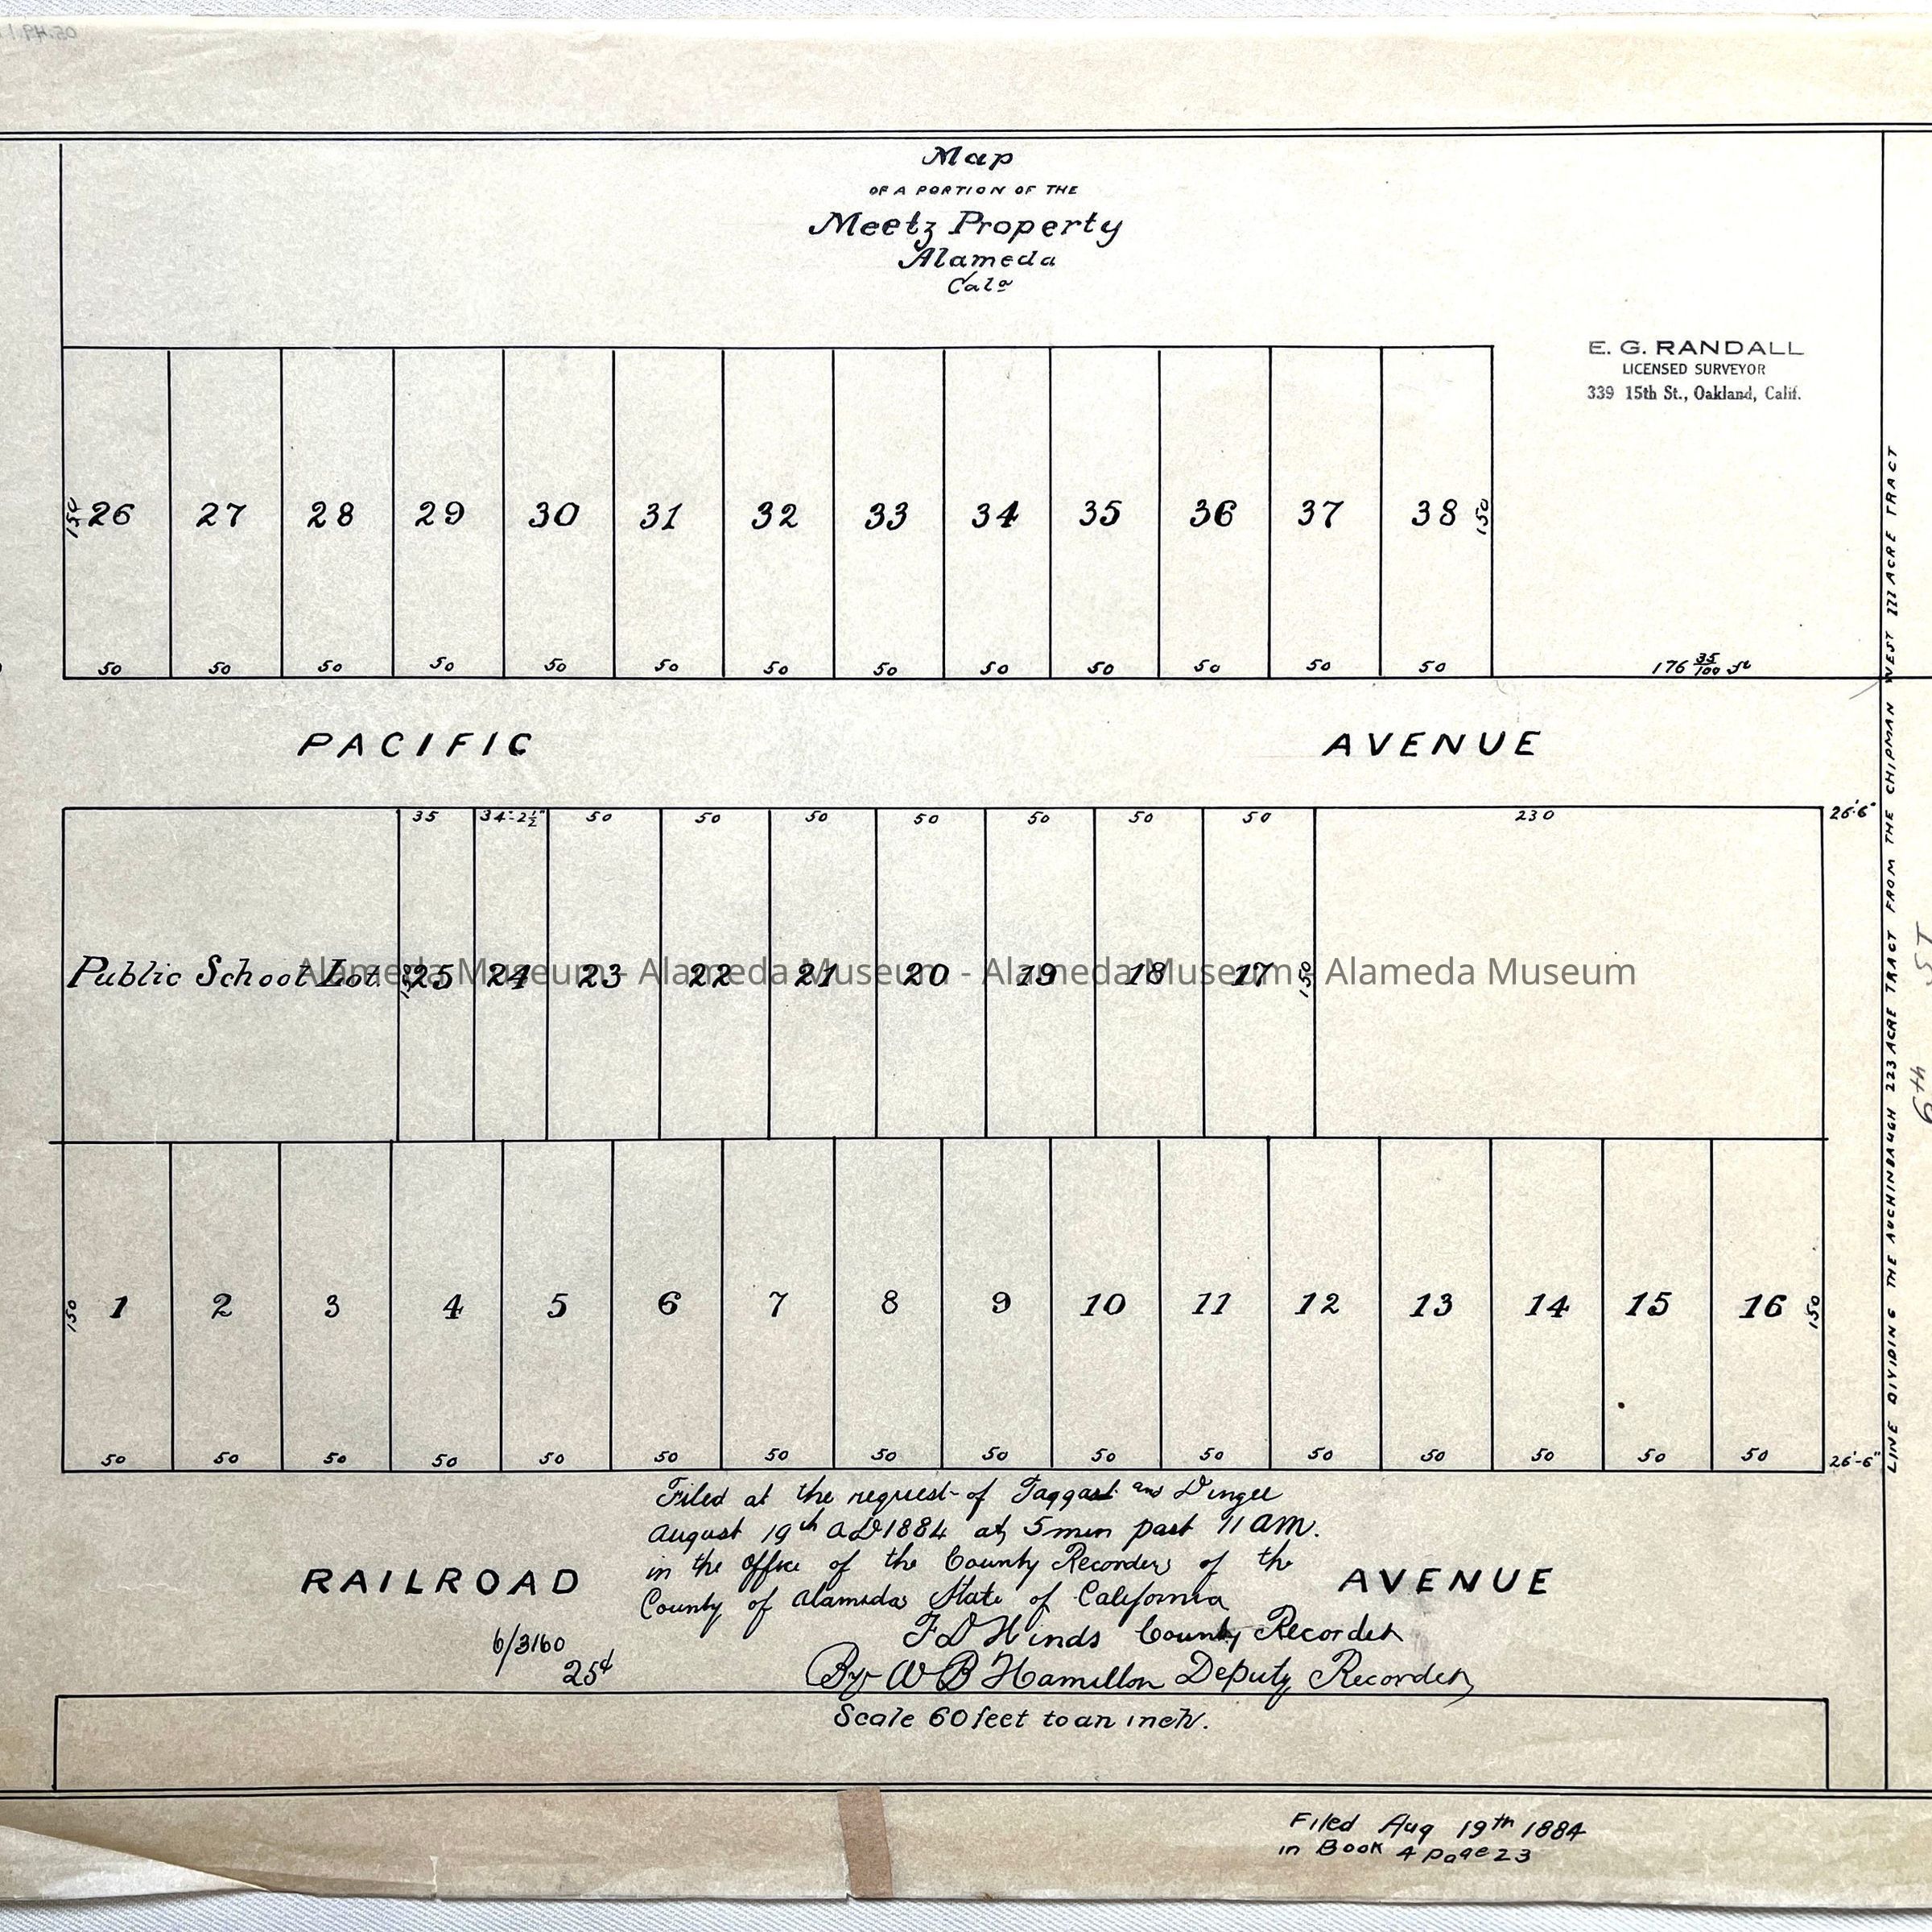 05.49.1
Map
OF A PORTION OF THE
Meetz Property
Alameda
Cala
E. G. RANDALL
LICENSED SURVEYOR
339 15th St., Oakland, Calif.
150 26 27 28 29 30 31 32 33 34 35 36 37 38 150
50 50 50 50 50 50 50 50 50 50 50 50 50 176 35/100 ft
PACIFIC AVENUE
35 34'-2½" 50 50 50 50 50 50 50 230 26'6"
Public School Lot 150 25 24 23 22 21 20 19 18 17 150
Alameda Museum - Alameda Museum - Alameda Museum - Alameda Museum
150 1 2 3 4 5 6 7 8 9 10 11 12 13 14 15 16 150
50 50 50 50 50 50 50 50 50 50 50 50 50 50 50 50 26'-6"
LINE DIVIDING THE AUCHINBAUGH 223 ACRE TRACT FROM THE CHIPMAN WEST 111 ACRE TRACT
6th ST
Filed at the request of Taggart and Dingee
August 19th AD 1884 at 5 min past 11 AM.
in the Office of the County Recorders of the
County of Alameda State of California
F D Hinds County Recorder
By W B Hamilton Deputy Recorder
RAILROAD AVENUE
6/3160
25¢
Scale 60 feet to an inch.
Filed Aug 19th 1884
in Book 4 page 23